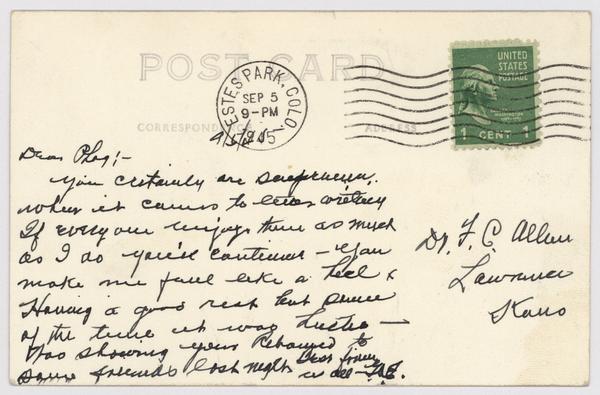 POST CARD
ESTES PARK, COLO.
SEP 5
9-PM
1945
UNITED
STATES
POSTAGE
WASHINGTON
1 CENT 1
CORRESPONDENCE
ADDRESS
Dear Phog;-
You certainly are
when it comes to letter writing
If everyone enjoys them as much
as I do you'll continue - You
make me feel like a heel &
Having a good rest but some
of the time it was
Was showing your to
some friends last night
in all -
Dr. F. C. Allen
Lawrence
Kans